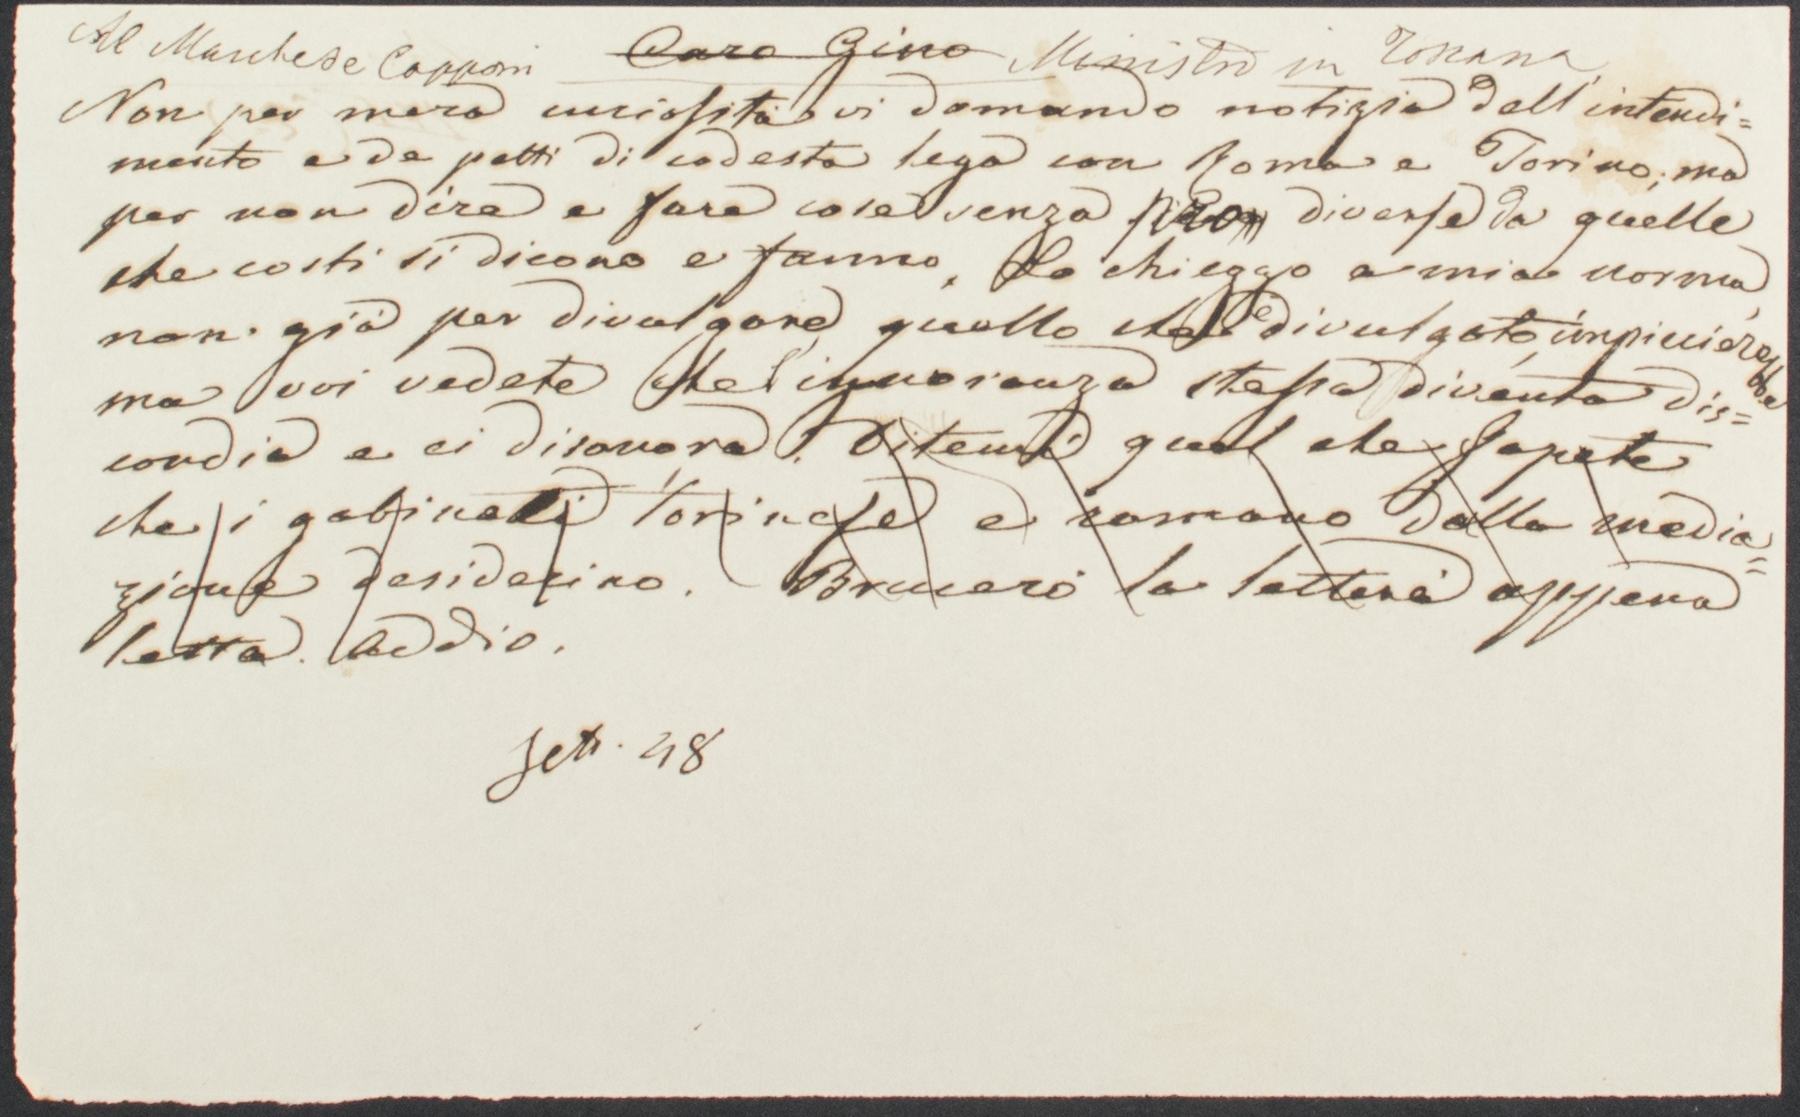 Al Marchese Capponi Caro Gino Ministro in Toscana
Non per mera curiosità vi domando notizia dell'intendi=
mento e de patti di codesta lega con Roma e Torino; ma
per non dire e fare cose senza diverse da quelle
che costì si dicono e fanno. Lo chieggo a mia norma,
non già per divulgare quello che divulgato impiccierebbe
ma voi vedete che l'ignoranza stessa diventa dis=
cordia e ci disonora. Ditemi quel che sapete
che i gabinetti Torinese e romano dalla media=
zione desiderino. Brucerò la lettera appena
letta. Addio.
Sett. 48